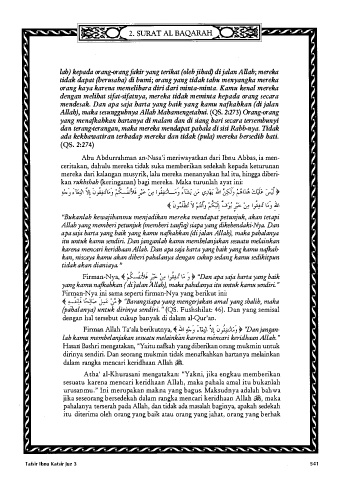 2. SURAT AL BAQARAH
lah) kepada orang-orang fakir yang terikat (oleh jihad) di jalan Allah; mereka
tidak dapat (berusaha) di bumi; orang yang tidak tahu menyangka mereka
orang kaya karena memelihara diri dari minta-minta. Kamu kenal mereka
dengan melihat sifat-sifatnya, mereka tidak meminta kepada orang secara
mendesak. Dan apa saja harta yang baik yang kamu nafkahkan (di jalan
Allah), maka sesungguhnya Allah Mahamengetahui. (QS. 2:273) Orang-orang
yang menafkahkan hartanya di malam dan di siang hari secara tersembunyi
dan terang-terangan, maka mereka mendapat pahala di sisi Rabb-nya. Tidak
ada kekhawatiran terhadap mereka dan tidak (pula) mereka bersedih hati.
(QS. 2:274)
Abu Abdurrahman an-Nasa'i meriwayatkan dari Ibnu Abbas, ia men-
ceritakan, dahulu mereka tidak suka memberikan sedekah kepada keturunan
mereka dari kalangan musyrik, lalu mereka menanyakan hal itu, hingga diberi-
kan rukhshah (keringanan) bagi mereka. Maka turunlah ayat ini:
﴿ لَّيْسَ عَلَيْكَ هُدَاهُمْ وَلَٰكِنَّ اللهَ يَهْدِي مَن يَشَاءُ وَمَا تُنفِقُوا مِنْ خَيْرٍ فَلِأَنفُسِكُمْ وَمَا تُنفِقُونَ إِلَّا ابْتِغَاءَ وَجْهِ
اللهِ وَمَا تُنفِقُوا مِنْ خَيْرٍ يُوَفَّ إِلَيْكُمْ وَأَنتُمْ لَا تُظْلَمُونَ ﴾
"Bukanlah kewajibanmu menjadikan mereka mendapat petunjuk, akan tetapi
Allah yang memberi petunjuk (memberi taufiq) siapa yang dikehendaki-Nya. Dan
apa saja harta yang baik yang kamu nafkahkan (di jalan Allah), maka pahalanya
itu untuk kamu sendiri. Dan janganlah kamu membelanjakan sesuatu melainkan
karena mencari keridhaan Allah. Dan apa saja harta yang baik yang kamu nafkah-
kan, niscaya kamu akan diberi pahalanya dengan cukup sedang kamu sedikitpun
tidak akan dianiaya."
Firman-Nya, ﴿ وَ مَا تُنفِقُوا مِنْ خَيْرٍ فَلِأَنفُسِكُمْ ﴾ "Dan apa saja harta yang baik
yang kamu nafkahkan (di jalan Allah), maka pahalanya itu untuk kamu sendiri."
Firman-Nya ini sama seperti firman-Nya yang berikut ini:
﴿ مَّنْ عَمِلَ صَالِحًا فَلِنَفْسِهِ ﴾ "Barangsiapa yang mengerjakan amal yang shalih, maka
(pahalanya) untuk dirinya sendiri." (QS. Fushshilat: 46). Dan yang semisal
dengan hal tersebut cukup banyak di dalam al-Qur'an.
Firman Allah Ta'ala berikutnya, ﴿ وَمَا تُنفِقُونَ إِلَّا ابْتِغَاءَ وَجْهِ اللهِ ﴾ "Dan jangan-
lah kamu membelanjakan sesuatu melainkan karena mencari keridhaan Allah."
Hasan Bashri mengatakan, "Yaitu nafkah yang diberikan orang mukmin untuk
dirinya sendiri. Dan seorang mukmin tidak menafkahkan hartanya melainkan
dalam rangka mencari keridhaan Allah
Atha' al-Khurasani mengatakan: "Yakni, jika engkau memberikan
sesuatu karena mencari keridhaan Allah, maka pahala amal itu bukanlah
urusanmu." Ini merupakan makna yang bagus. Maksudnya adalah bahwa
jika seseorang bersedekah dalam rangka mencari keridhaan Allah , maka
pahalanya terserah pada Allah, dan tidak ada masalah baginya, apakah sedekah
itu diterima oleh orang yang baik atau orang yang jahat, orang yang berhak
Tafsir Ibnu Katsir Juz 3
541